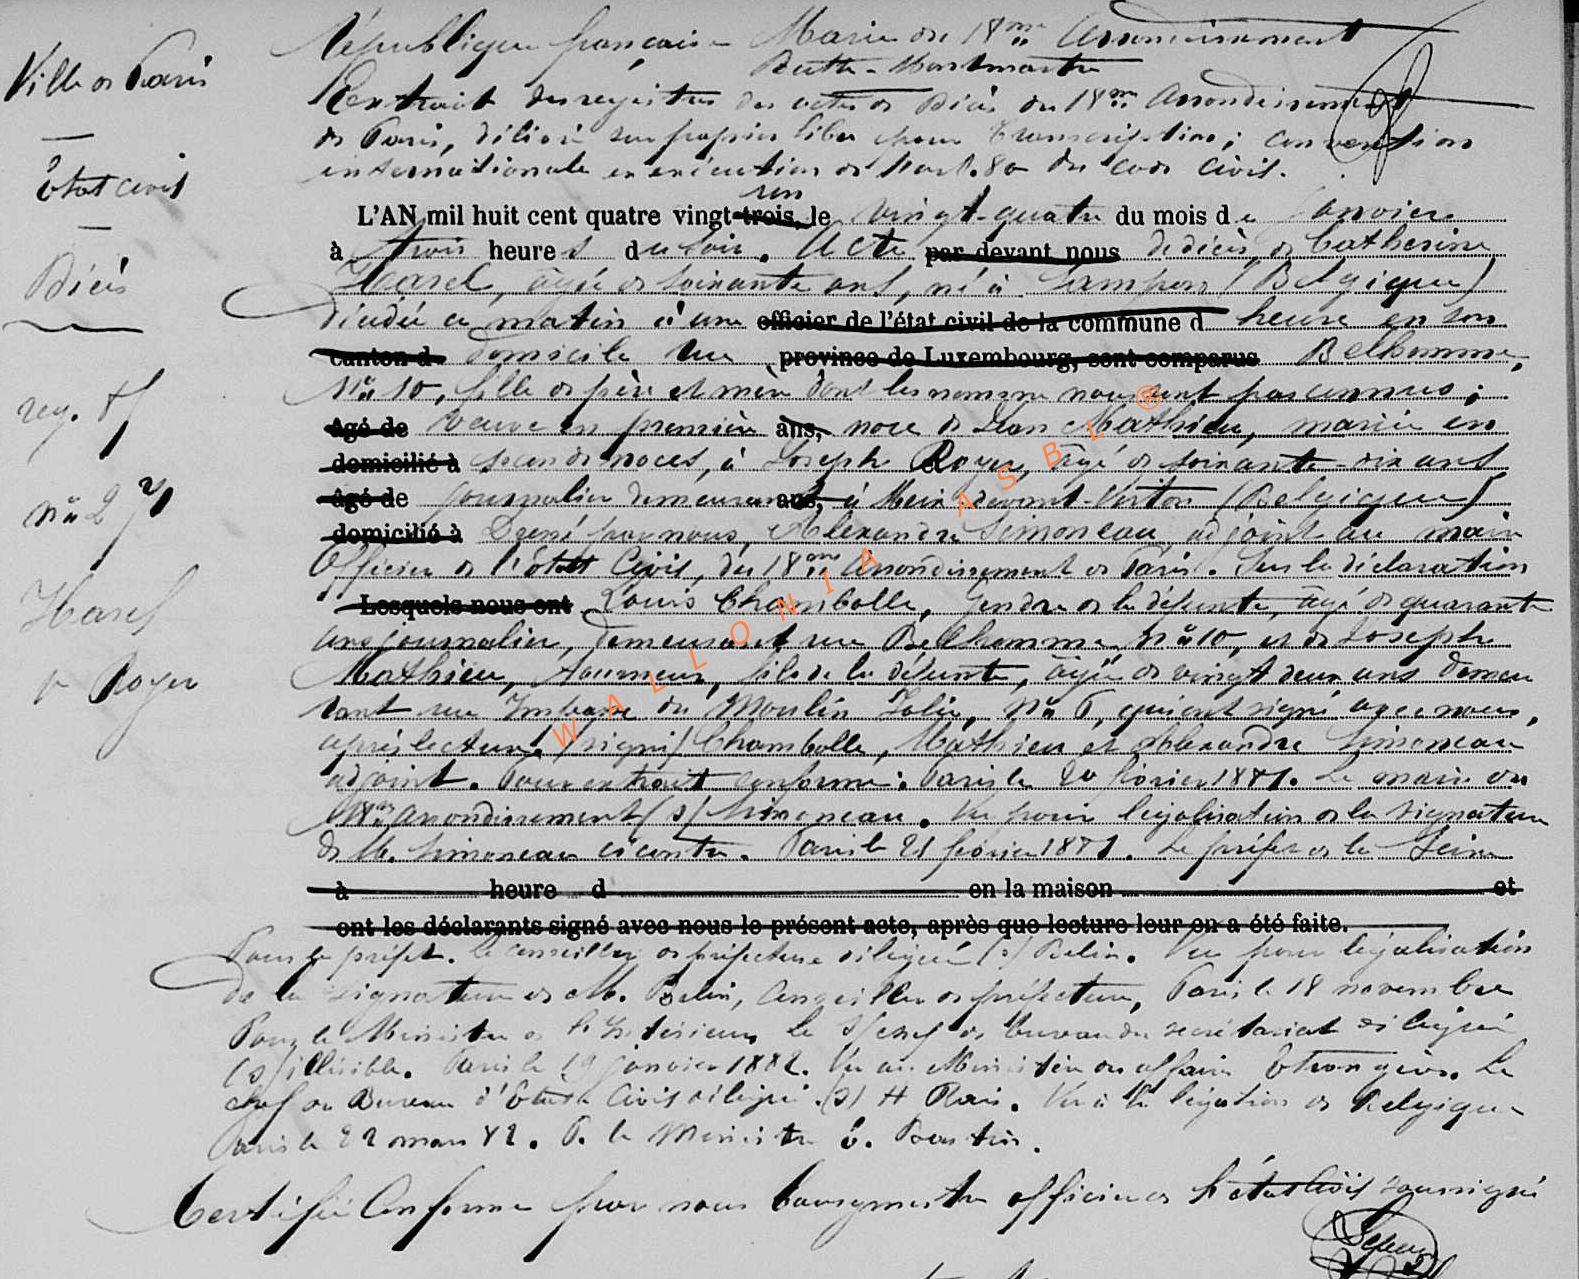 République française Mairie du 18me Arrondissement
Butte-Montmartre
Ville de Paris
Extrait des registres des actes de Décès du 18me Arrondissement
de Paris, délivré sur papier libre pour Transcription; convention
internationale en exécution de l'art. 80 du code Civil.
État civil
un
L'AN mil huit cent quatre vingt-trois, le vingt-quatre du mois de janvier
à trois heures du soir. Acte par devant nous de décès, de Catherine
Décès
Harel, âgée de soixante ans, né à (Belgique)
décédée ce matin à une officier de l'état civil de la commune d heure en son
canton d domicile rue province de Luxembourg, sont comparus Belhomme,
reg. 81
No 10, fille de père et mère dont les noms ne nous sont pas connus;
Agé de veuve en première ans, noce de Jean Mathieu, mariée en
domicilié à secondes noces, à Joseph Royer, âgé de soixante-dix ans
Agé de journalier demeurant ans, à Meix-devant-Virton (Belgique)
no 27
domicilié à Dressé par nous, Alexandre Simoneau, adjoint au maire
Officier de l'état Civil, du 18me Arrondissement de Paris. Sur la déclaration
Harel
Lesquels nous ont Louis Chambolle, gendre de la défunte, âgé de quarante
ans journalier, demeurant rue Belhomme, no 10, et de Joseph
Ve Royer
Mathieu, tourneur, fils de la défunte, âgé de vingt deux ans demeu
rant rue Impasse du Moulin Joli, No 6, qui ont signé avec nous,
après lecture. (signé) Chambolle, Mathieu et Alexandre Simoneau
adjoint. Pour extrait conforme: Paris le 20 février 1881. Le maire du
18me arrondissement (s) Simoneau. Vu pour légalisation de la signature
de M. Simoneau ci contre. Paris le 21 février 1881. Le préfet de la Seine
à heure d en la maison et
ont les déclarants signé avec nous le présent acte, après que lecture leur en a été faite.
Pour le préfet. Le conseiller de préfecture délégué (s) Belin. Vu pour légalisation
de la signature de M. Belin, Conseiller de préfecture, Paris le 18 novembre
Pour le Ministre de l'Intérieur, le s/chef de bureau du secrétariat délégué
(s) illisible. Paris le 19 janvier 1882. Vu au Ministère des affaires Etrangères. Le
chef du Bureau d'État Civil délégué (s) H. Vu à la légation de Belgique
Paris le 22 mars 82. P. le Ministre
Certifié Conforme par nous bourgmestre officier de l'état Civil soussigné
WALLONIA ASBL ®